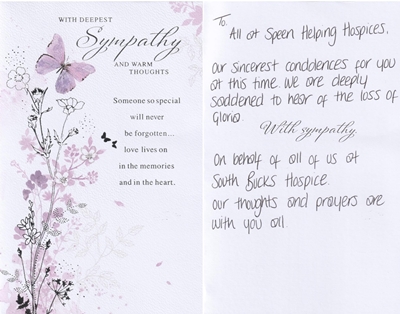 WITH DEEPEST
Sympathy
AND WARM
THOUGHTS
Someone so special
will never
be forgotten...
love lives on
in the memories
and in the heart.
To.
All at Speen Helping Hospices.
Our sincerest condolences for you
at this time. We are deeply
saddened to hear of the loss of
Gloria.
With sympathy
On behalf of all of us at
South Bucks Hospice.
our thoughts and prayers are
with you all.